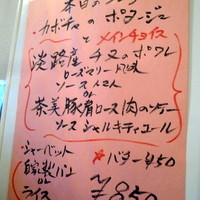 本日の
カボチャの ポタージュ
と メインチョイス
淡路産 チヌのポワレ
ローズマリー
ソース トマト
or
茶美豚肩ロース肉のソテー
ソース シャルキティエール
シャーベット
自家製パン
or
ライス
*バター ¥50
¥850